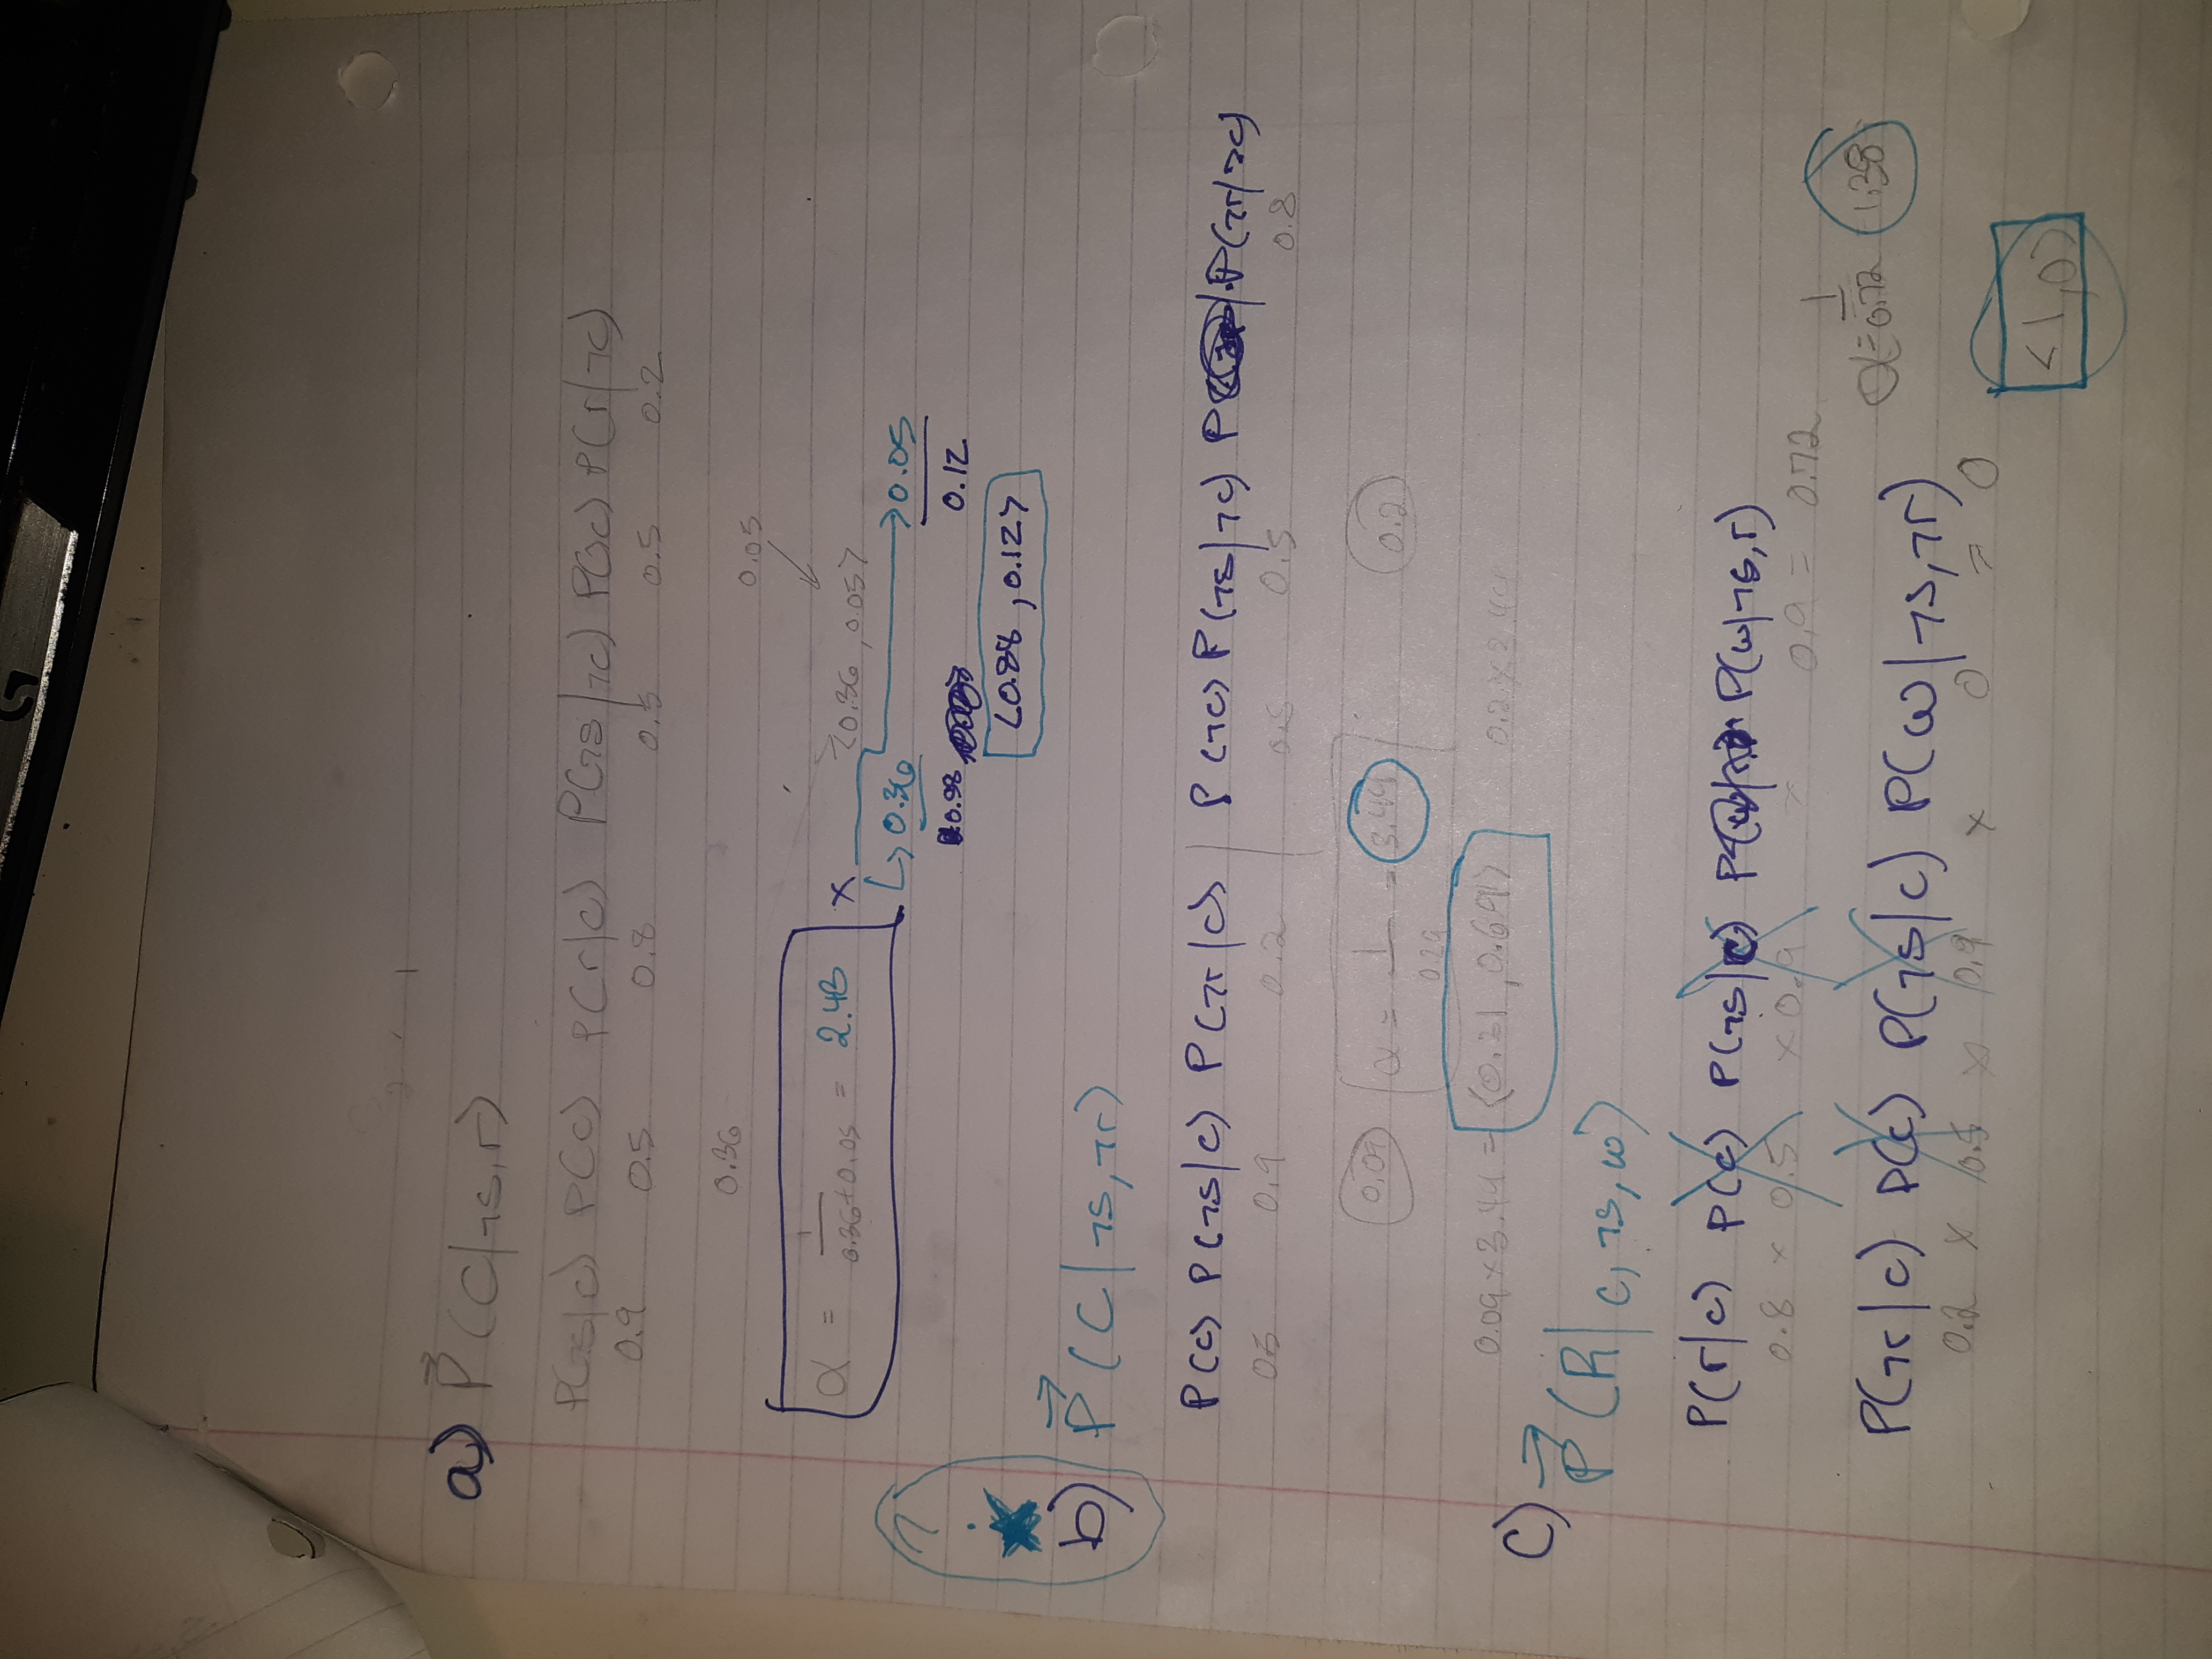 a) P⃗(C|¬s,r)
P(¬s|c) P(c) P(r|c) P(¬s|¬c) P(¬c) P(r|¬c)
0.9 0.5 0.8 0.5 0.5 0.2
0.36 0.05
α = 1/(0.36+0.05) = 2.43 × <0.36, 0.05>
0.36 0.05
0.98 0.12
<0.88, 0.12>
?
b) P⃗(C|¬s,¬r)
P(c) P(¬s|c) P(¬r|c) | P(¬c) P(¬s|¬c) P P(¬r|¬c)
0.5 0.9 0.2 0.5 0.5 0.8
0.09 α = 1/0.29 = 3.44 0.2
0.09 × 3.44 = <0.31, 0.69> 0.2 × 3.44
c) P⃗(R|c,¬s,w)
P(r|c) P(c) P(¬s|c) P(w|¬s,r)
0.8 × 0.5 × 0.9 × 0.9 = 0.72
α = 1/0.72 1.38
P(¬r|c) P(c) P(¬s|c) P(w|¬s,¬r)
0.2 × 0.5 × 0.9 × 0 = 0
<1,0>